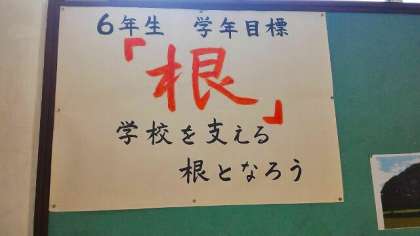 6年生 学年目標
「根」
学校を支える
根となろう